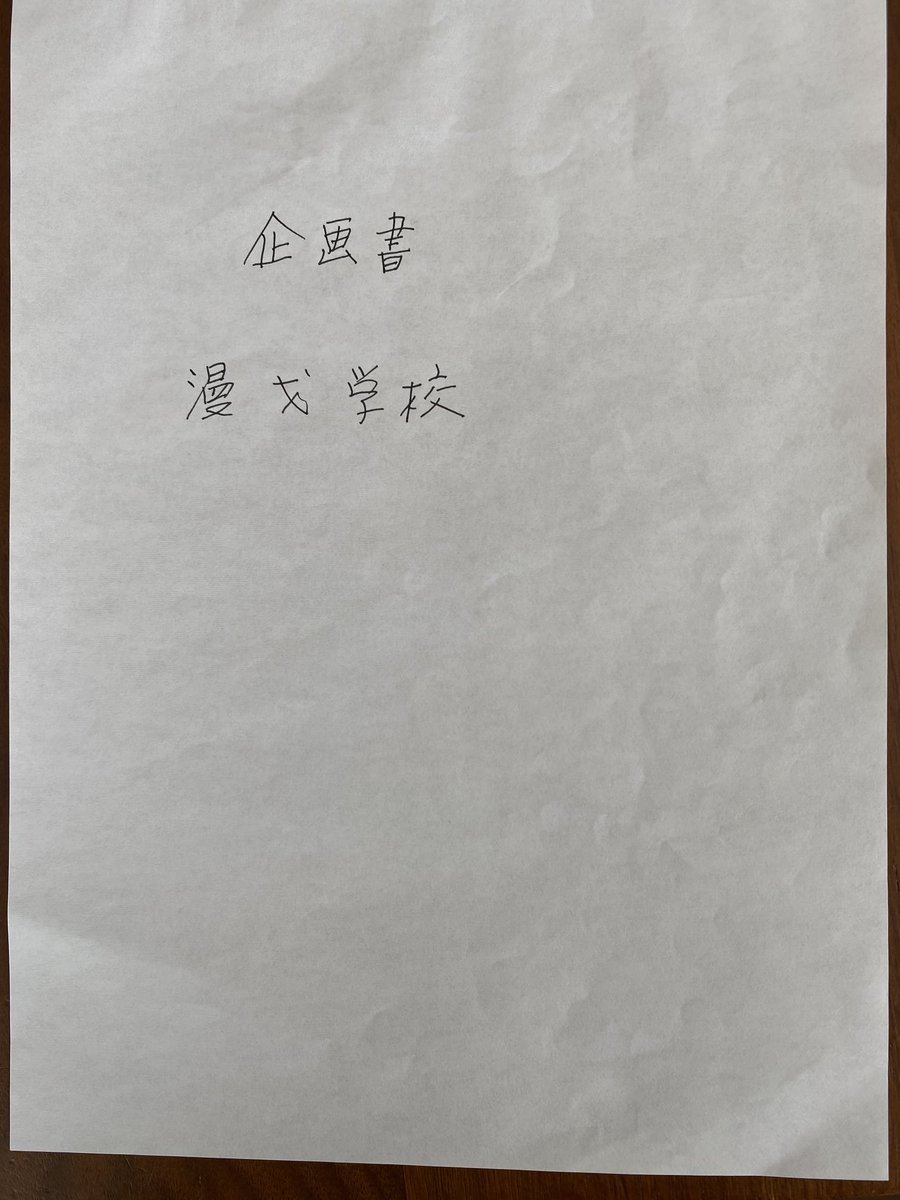 企画書
漫才学校